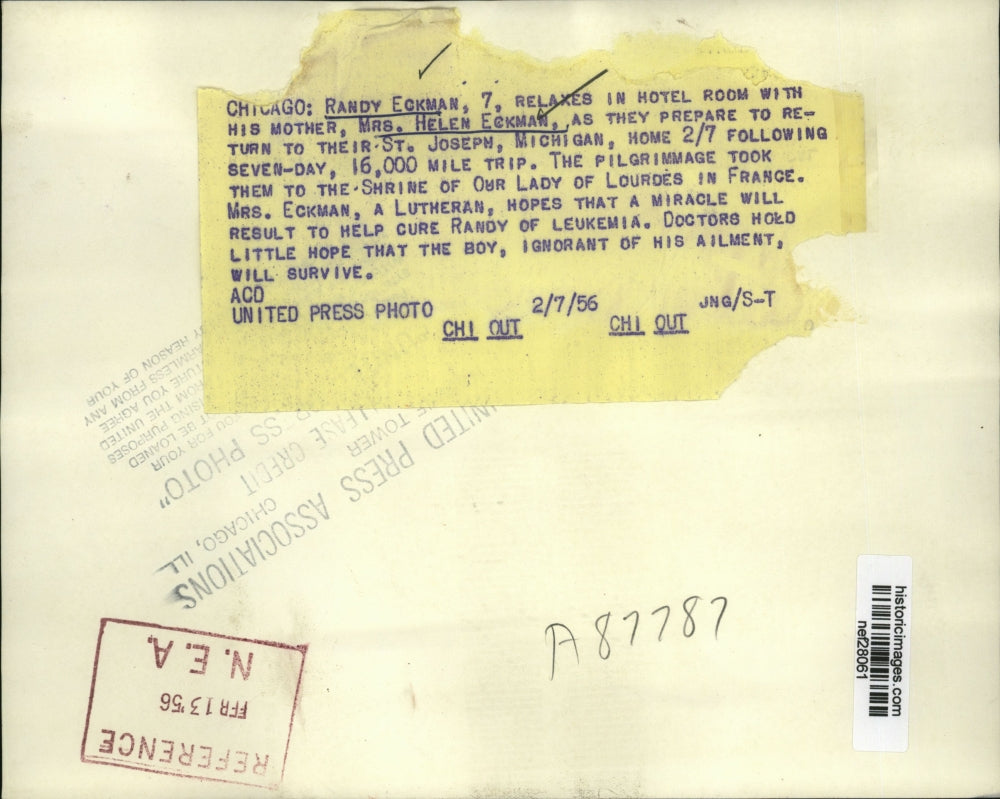 CHICAGO: RANDY ECKMAN, 7, RELAXES IN HOTEL ROOM WITH
HIS MOTHER, MRS. HELEN ECKMAN, AS THEY PREPARE TO RE-
TURN TO THEIR ST. JOSEPH, MICHIGAN, HOME 2/7 FOLLOWING
SEVEN-DAY, 16,000 MILE TRIP. THE PILGRIMMAGE TOOK
THEM TO THE SHRINE OF OUR LADY OF LOURDES IN FRANCE.
MRS. ECKMAN, A LUTHERAN, HOPES THAT A MIRACLE WILL
RESULT TO HELP CURE RANDY OF LEUKEMIA. DOCTORS HOLD
LITTLE HOPE THAT THE BOY, IGNORANT OF HIS AILMENT,
WILL SURVIVE.
ACD
UNITED PRESS PHOTO 2/7/56 JNG/S-T
CHI OUT CHI OUT
UNITED PRESS ASSOCIATIONS
TOWER
CHICAGO, ILL
CREDIT
PHOTO"
YOU FOR YOUR LOANED
BE PURPOSES
USING THE UNITED
FROM YOU AGREE
HARMLESS FROM ANY
BY REASON OF YOUR
A87787
REFERENCE
FEB 13 '56
N.E.A.
historicimages.com
nef28061